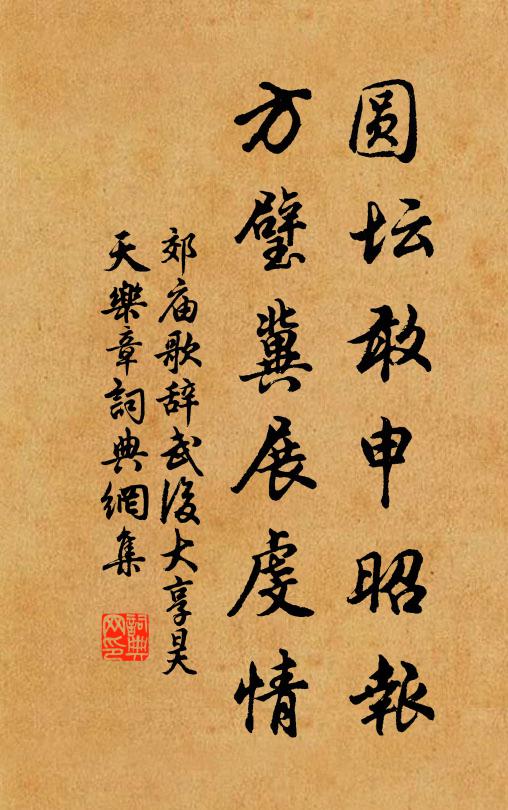 圆坛敢申昭報
方璧冀展虔情
郊庙歌辞武後大享昊
天樂章詞典網集
詞典网印